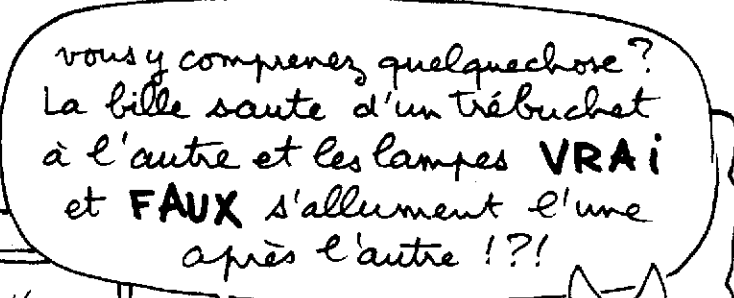 vous y comprenez quelquechose?
La bille saute d'un trébuchet
à l'autre et les lampes VRAi
et FAUX s'allument l'une
après l'autre !?!